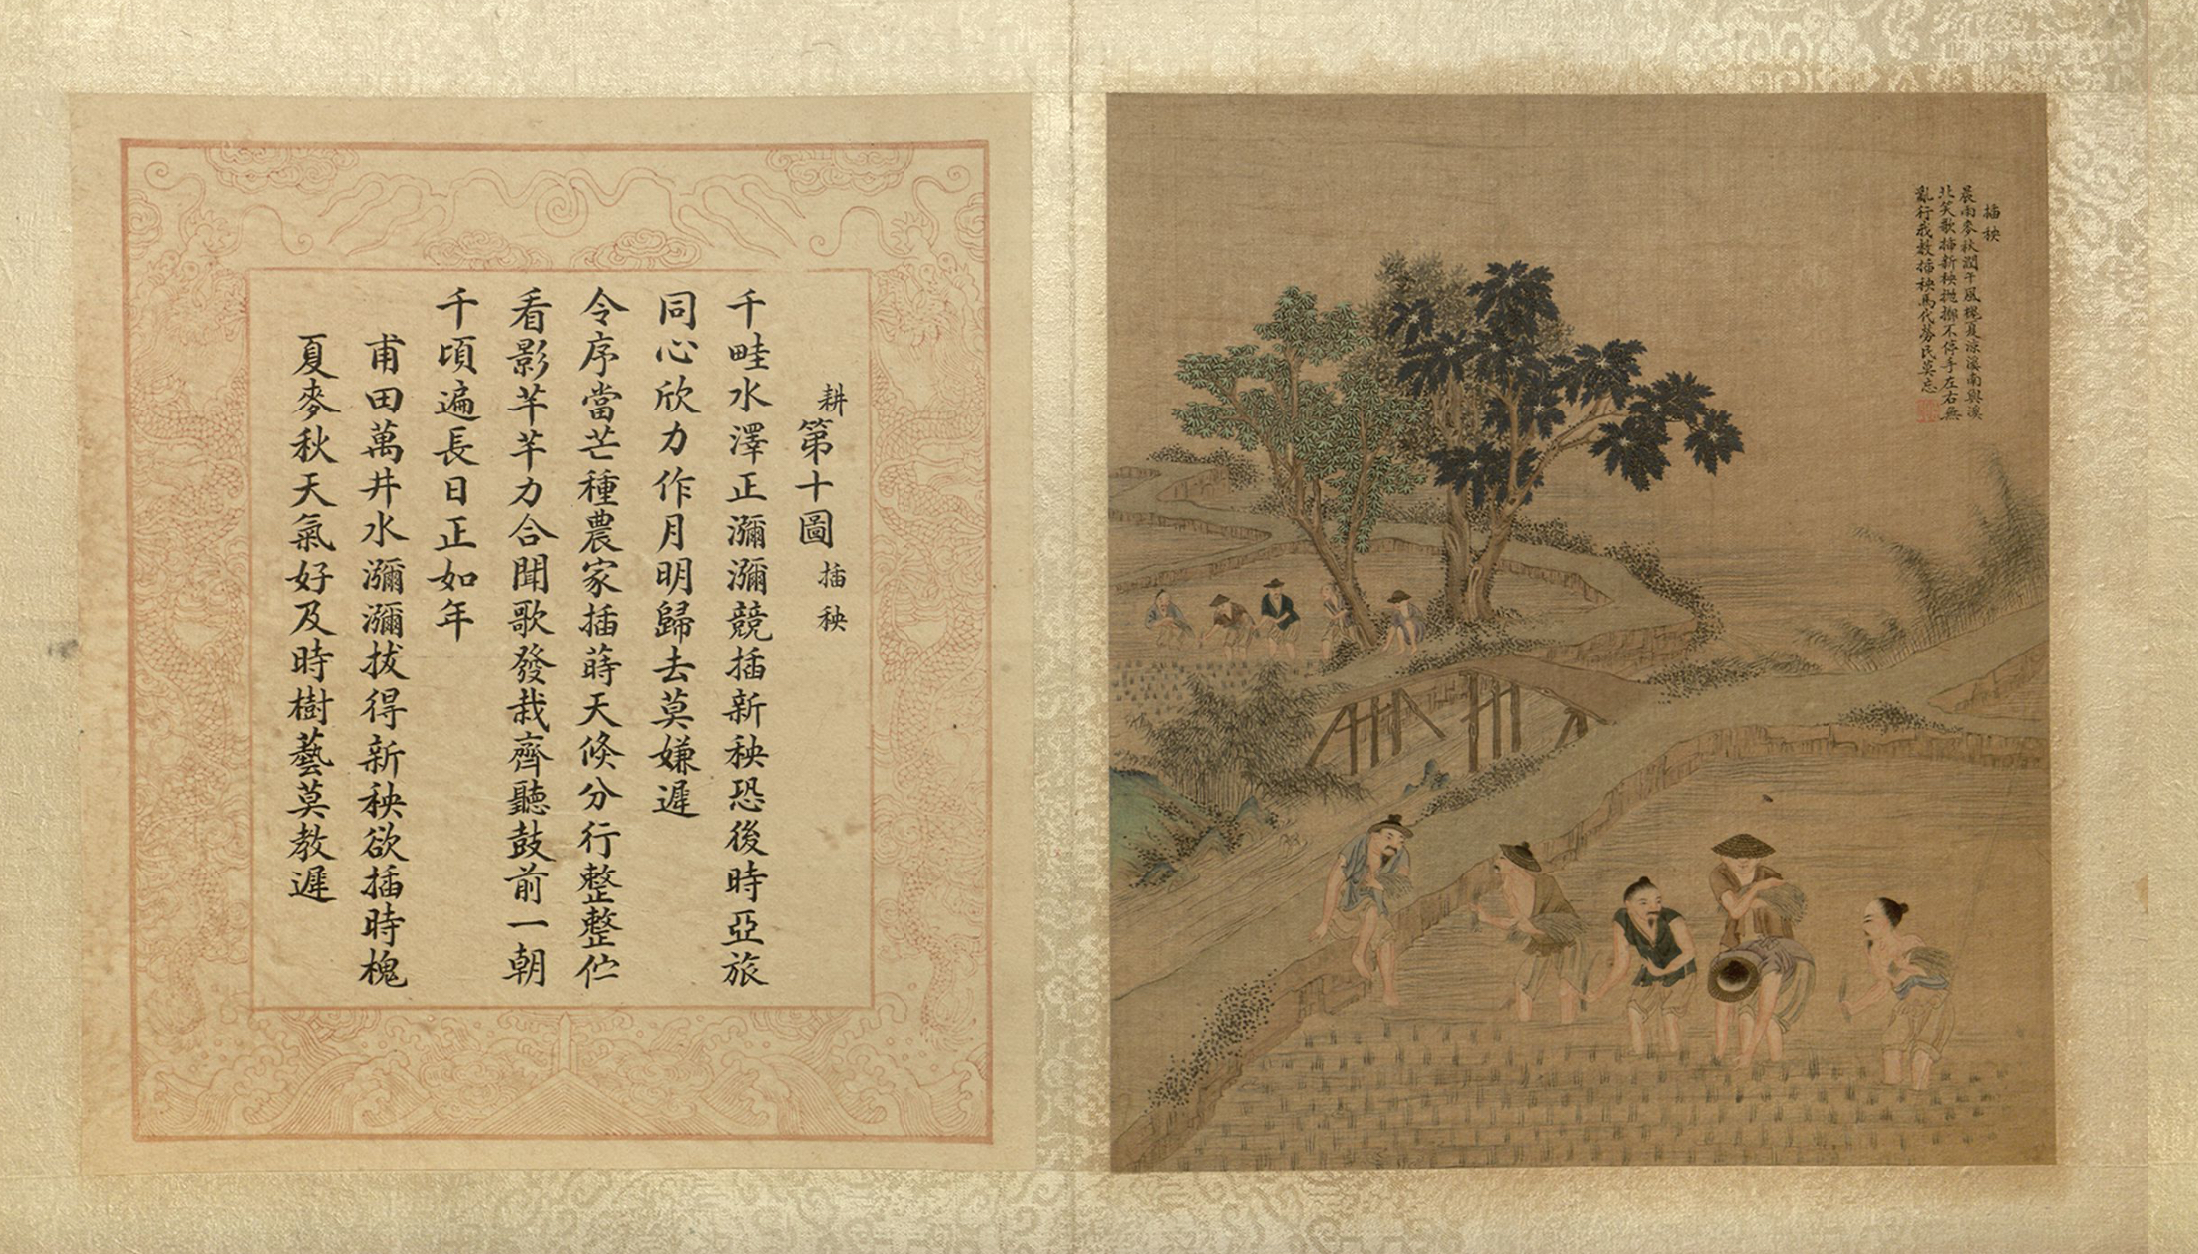 插秧
晨雨麥秋潤午風槐夏涼溪南與溪
北笑歌插新秧拋擲不停手左右無
亂行我教插秧馬代勞民莫忘
耕第十圖插秧
千畦水澤正瀰瀰競插新秧恐後時亞旅
同心欣力作月明歸去莫嫌遲
令序當芒種農家插蒔天倐分行整整佇
看影芊芊力合聞歌發栽齊聽鼓前一朝
千頃遍長日正如年
甫田萬井水瀰瀰拔得新秧欲插時槐
夏麥秋天氣好及時樹藝莫教遲